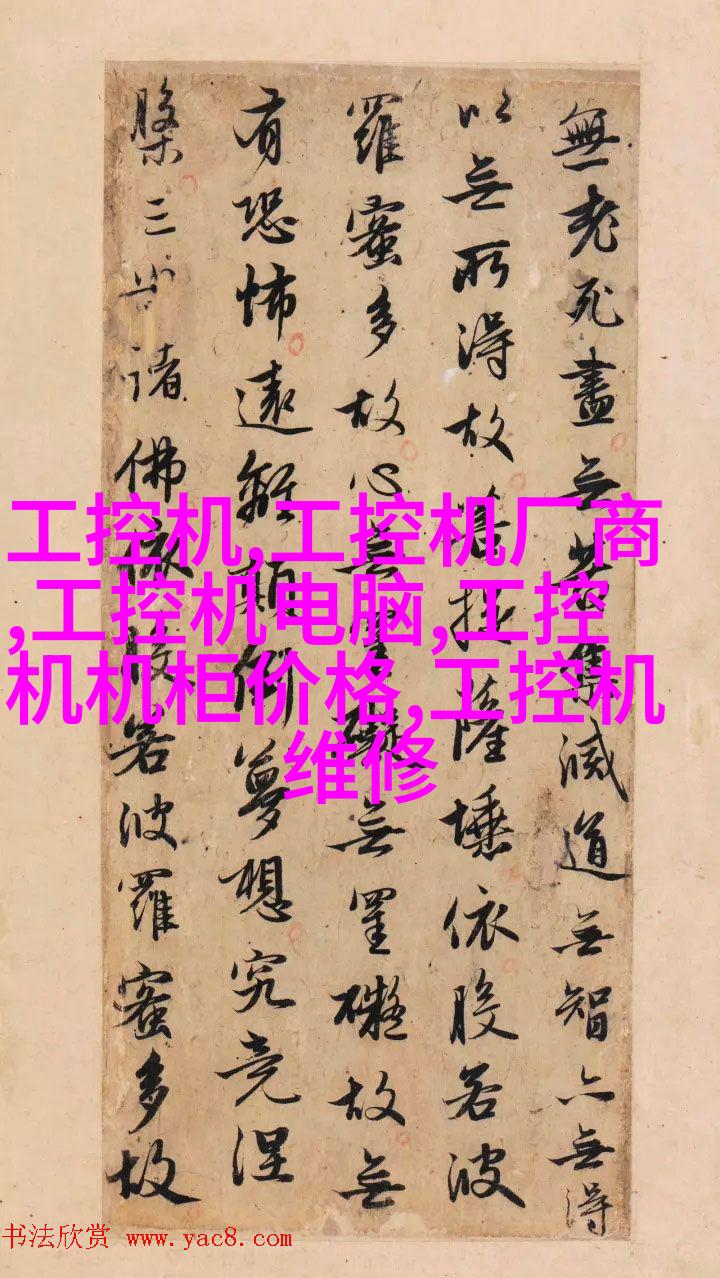 無老死盡无苦集滅道无智亦无得
以无所得故菩提薩埵依般若波
羅蜜多故心无罣礙无罣礙故无
有恐怖遠離顛倒夢想究竟涅
槃三世諸佛依般若波羅蜜多故
工控机,工控机厂商
,工控机电脑,工控
机机柜价格,工控机
维修
书法欣赏 www.yac8.com